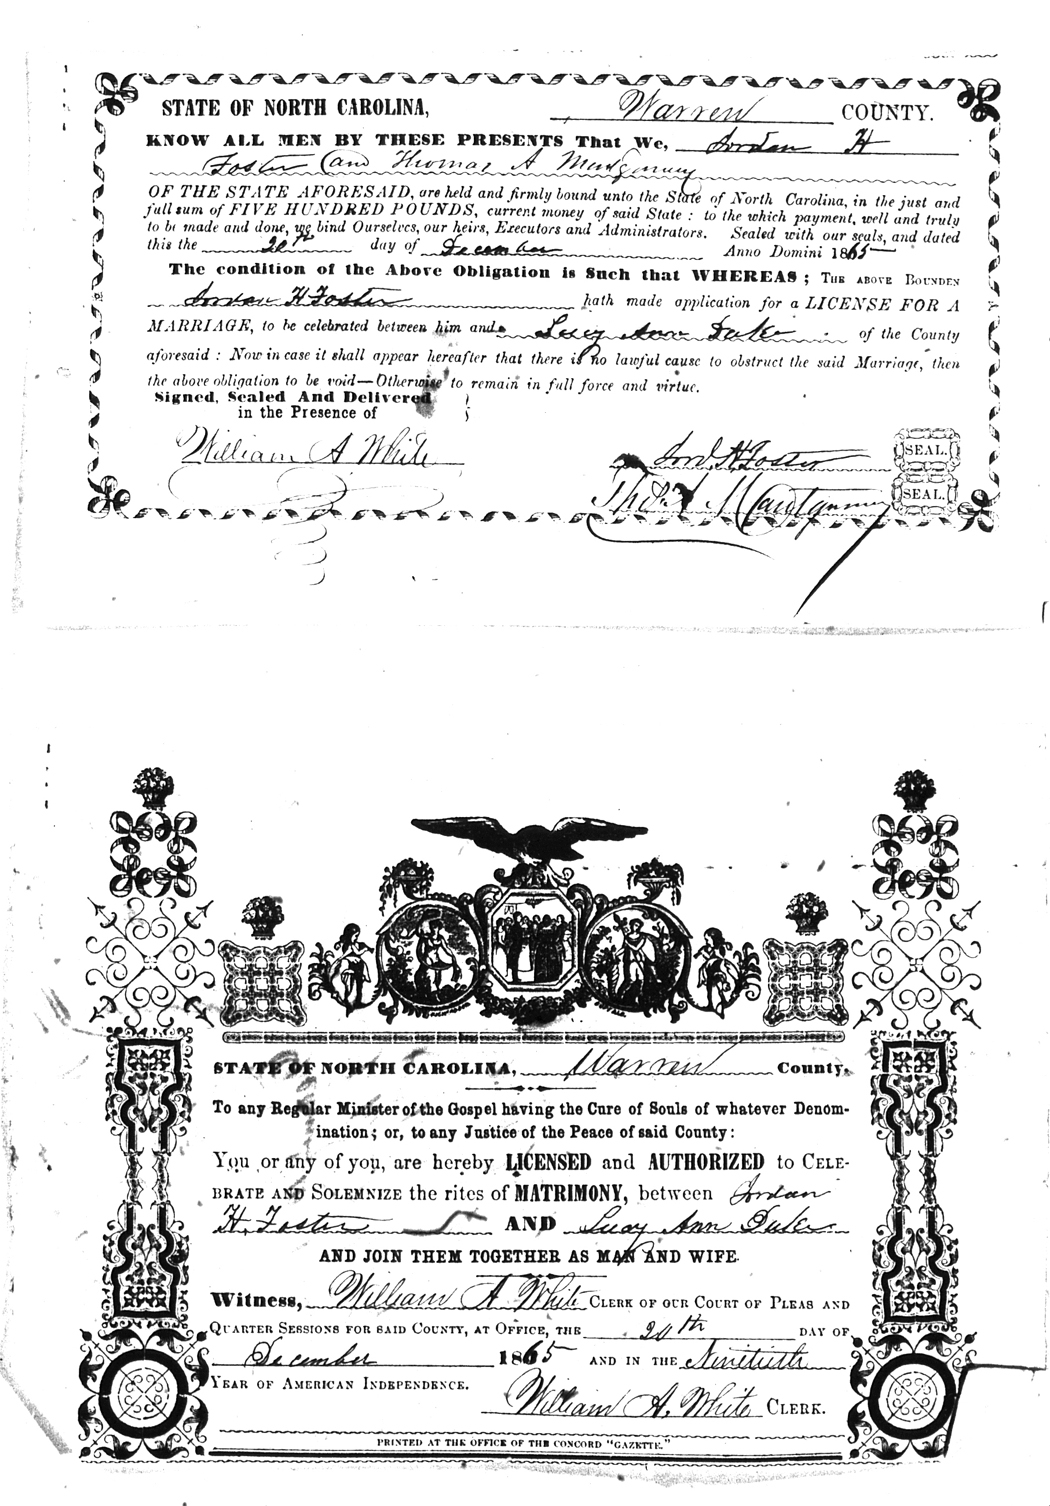 STATE OF NORTH CAROLINA, Warren COUNTY.
KNOW ALL MEN BY THESE PRESENTS That We, Jordan H
Foster and Thomas A Montgomery
OF THE STATE AFORESAID, are held and firmly bound unto the State of North Carolina, in the just and
full sum of FIVE HUNDRED POUNDS, current money of said State : to the which payment, well and truly
to be made and done, we bind Ourselves, our heirs, Executors and Administrators. Sealed with our seals, and dated
this the 20th day of December Anno Domini 1865
The condition of the Above Obligation is Such that WHEREAS ; THE ABOVE BOUNDEN
Jordan H Foster hath made application for a LICENSE FOR A
MARRIAGE, to be celebrated between him and Lucy Ann Duke of the County
aforesaid : Now in case it shall appear hereafter that there is no lawful cause to obstruct the said Marriage, then
the above obligation to be void—Otherwise to remain in full force and virtue.
Signed, Sealed And Delivered
in the Presence of
William A White
Jord. H Foster SEAL.
Tho. A Montgomery SEAL.
STATE OF NORTH CAROLINA, Warren County.
To any Regular Minister of the Gospel having the Cure of Souls of whatever Denom-
ination ; or, to any Justice of the Peace of said County :
You or any of you, are hereby LICENSED and AUTHORIZED to CELE-
BRATE AND SOLEMNIZE the rites of MATRIMONY, between Jordan
H. Foster AND Lucy Ann Duke
AND JOIN THEM TOGETHER AS MAN AND WIFE.
Witness, William A White CLERK OF OUR COURT OF PLEAS AND
QUARTER SESSIONS FOR SAID COUNTY, AT OFFICE, THE 20th DAY OF
December 1865 AND IN THE Ninetieth
YEAR OF AMERICAN INDEPENDENCE.
William A. White CLERK.
PRINTED AT THE OFFICE OF THE CONCORD "GAZETTE."